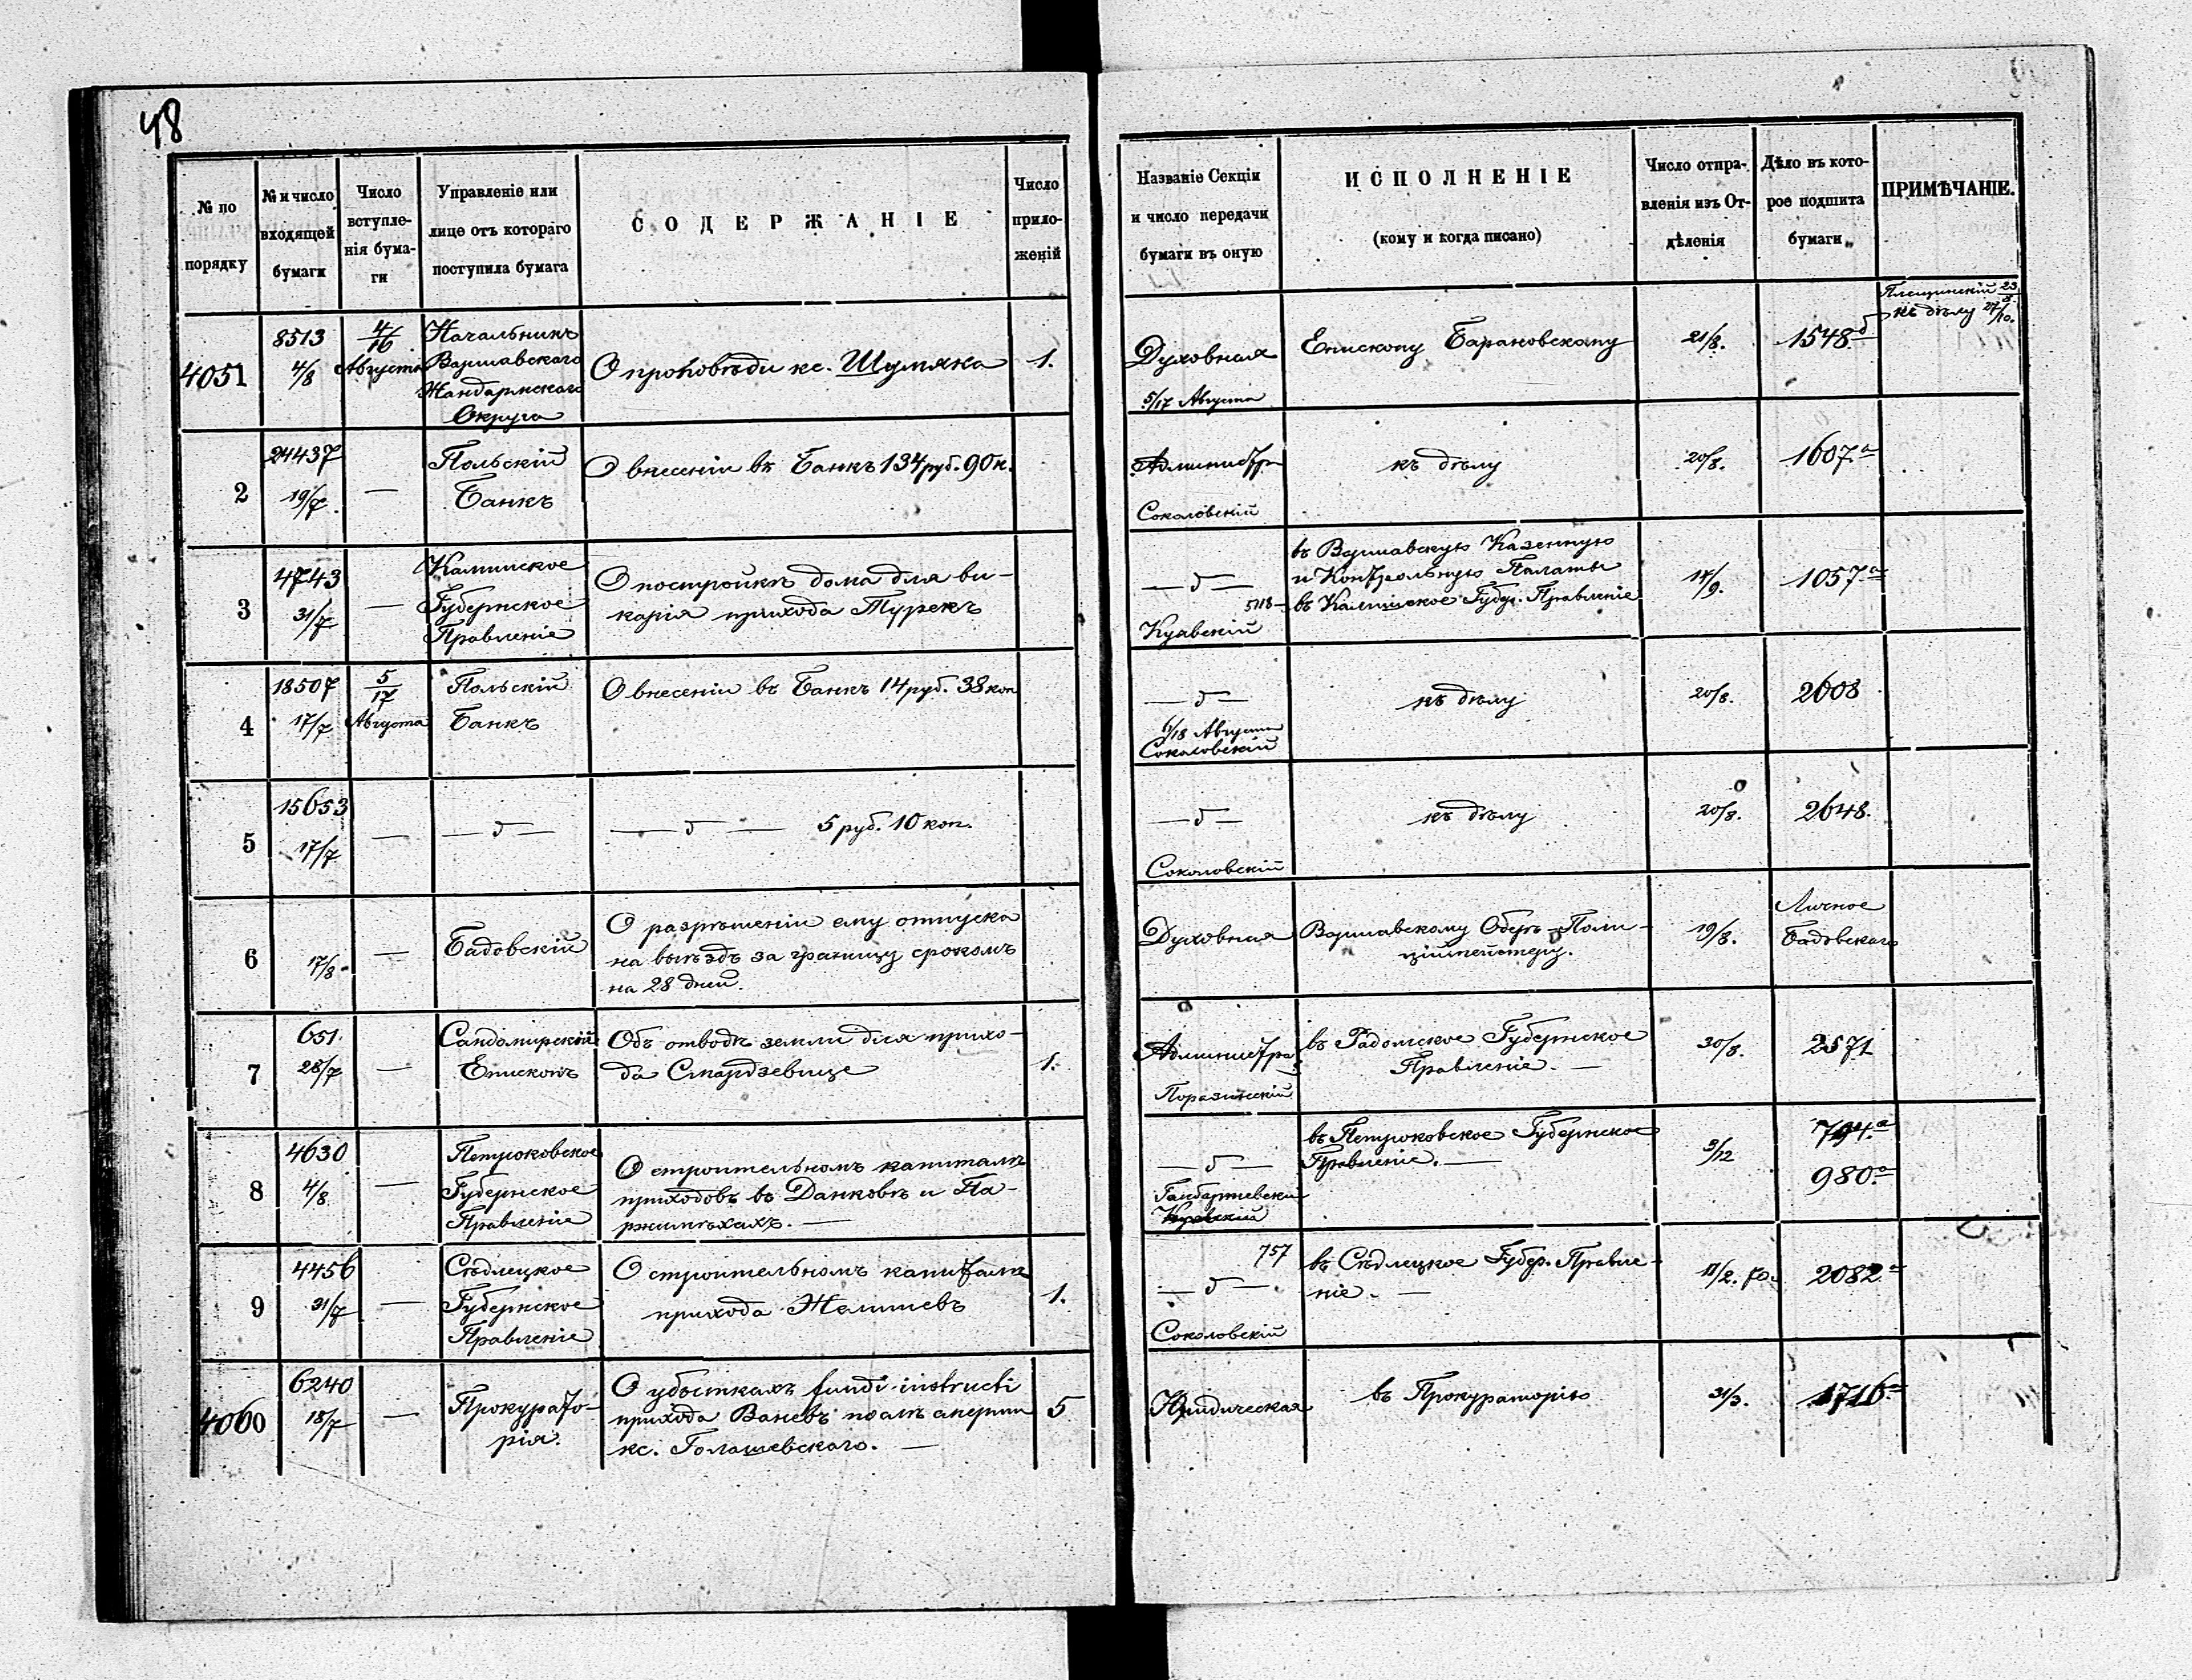 48
№ по порядку
№ и число входящей бумаги
Число вступле-
нія бума-
ги
Управленіе или
лице отъ котораго
поступила бумага
СОДЕРЖАНІЕ
Число
прило-
женій
Названіе Секціи
и число передачи
бумаги въ оную
ИСПОЛНЕНІЕ
(кому и когда писано)
Число отпра-
вленія изъ От-
дѣленія
Дѣло въ кото-
рое подшита
бумаги
ПРИМѢЧАНІЕ.
4051
8513
4/8
4/16
Августа
Начальникъ
Варшавскаго
Жандармскаго
Округа
О проповѣди кс. Шумяка
1.
Духовная
5/17 Августа
Епископу Барановскому
21/8.
1548 б
къ дѣлу 27/10.
2
24437
19/7.
—
Польскій
Банкъ
О внесеніи въ Банкъ 134 руб. 90 к.
Администр
Соколовскій
къ дѣлу
20/8.
1607. а
3
4743
31/7
—
Калишское
Губернское
Правленіе
О постройкѣ дома для ви-
карія прихода Турекъ
— д —
5118 —
Куявскій
въ Варшавскую Казенную
и Контрольную Палаты
въ Калишское Губер. Правленіе
14/9.
1057 а
4
18507
17/7
5/17
Августа
Польскій
Банкъ
О внесеніи въ Банкъ 14 руб. 38 коп
— д —
6/18 Августа
Соколовскій
къ дѣлу
20/8.
2608
5
15653
17/7
—
— д —
— д — 5 руб. 10 коп.
— д —
Соколовскій
къ дѣлу
20/8.
2648.
6
17/8.
—
Бадовскій
О разрѣшеніи ему отпуска
на выѣздъ за границу срокомъ
на 28 дней.
Духовная
Варшавскому Оберъ-Поли-
ціймейстеру.
19/8.
Личное
Бадовскаго
7
651.
28/7
—
Сандомирскій
Епископъ
Объ отводѣ земли для прихо-
да Смардзевице
1.
Администра
Поразинскій
въ Радомское Губернское
Правленіе. —
30/8.
2571
8
4630
4/8
—
Петроковское
Губернское
Правленіе
О строительномъ капиталѣ
приходовъ въ Данковѣ и Па-
ржимѣхахъ. —
— д —
Куявскій
въ Петроковское Губернское
Правленіе. —
5/12
794. а
980. а
9
4456
31/7
—
Сѣдлецкое
Губернское
Правленіе
О строительномъ капиталѣ
прихода Желишевъ
1.
757
— д —
Соколовскій
въ Сѣдлецкое Губер. Правле-
ніе. —
11/2. 70.
2082 а
4060
6240
18/7
—
Прокурато-
рія.
О убыткахъ fundi instructi
прихода Ваневъ послѣ смерти
кс. Голашевскаго. —
5
Юридическая
въ Прокураторію
31/3.
1716 а